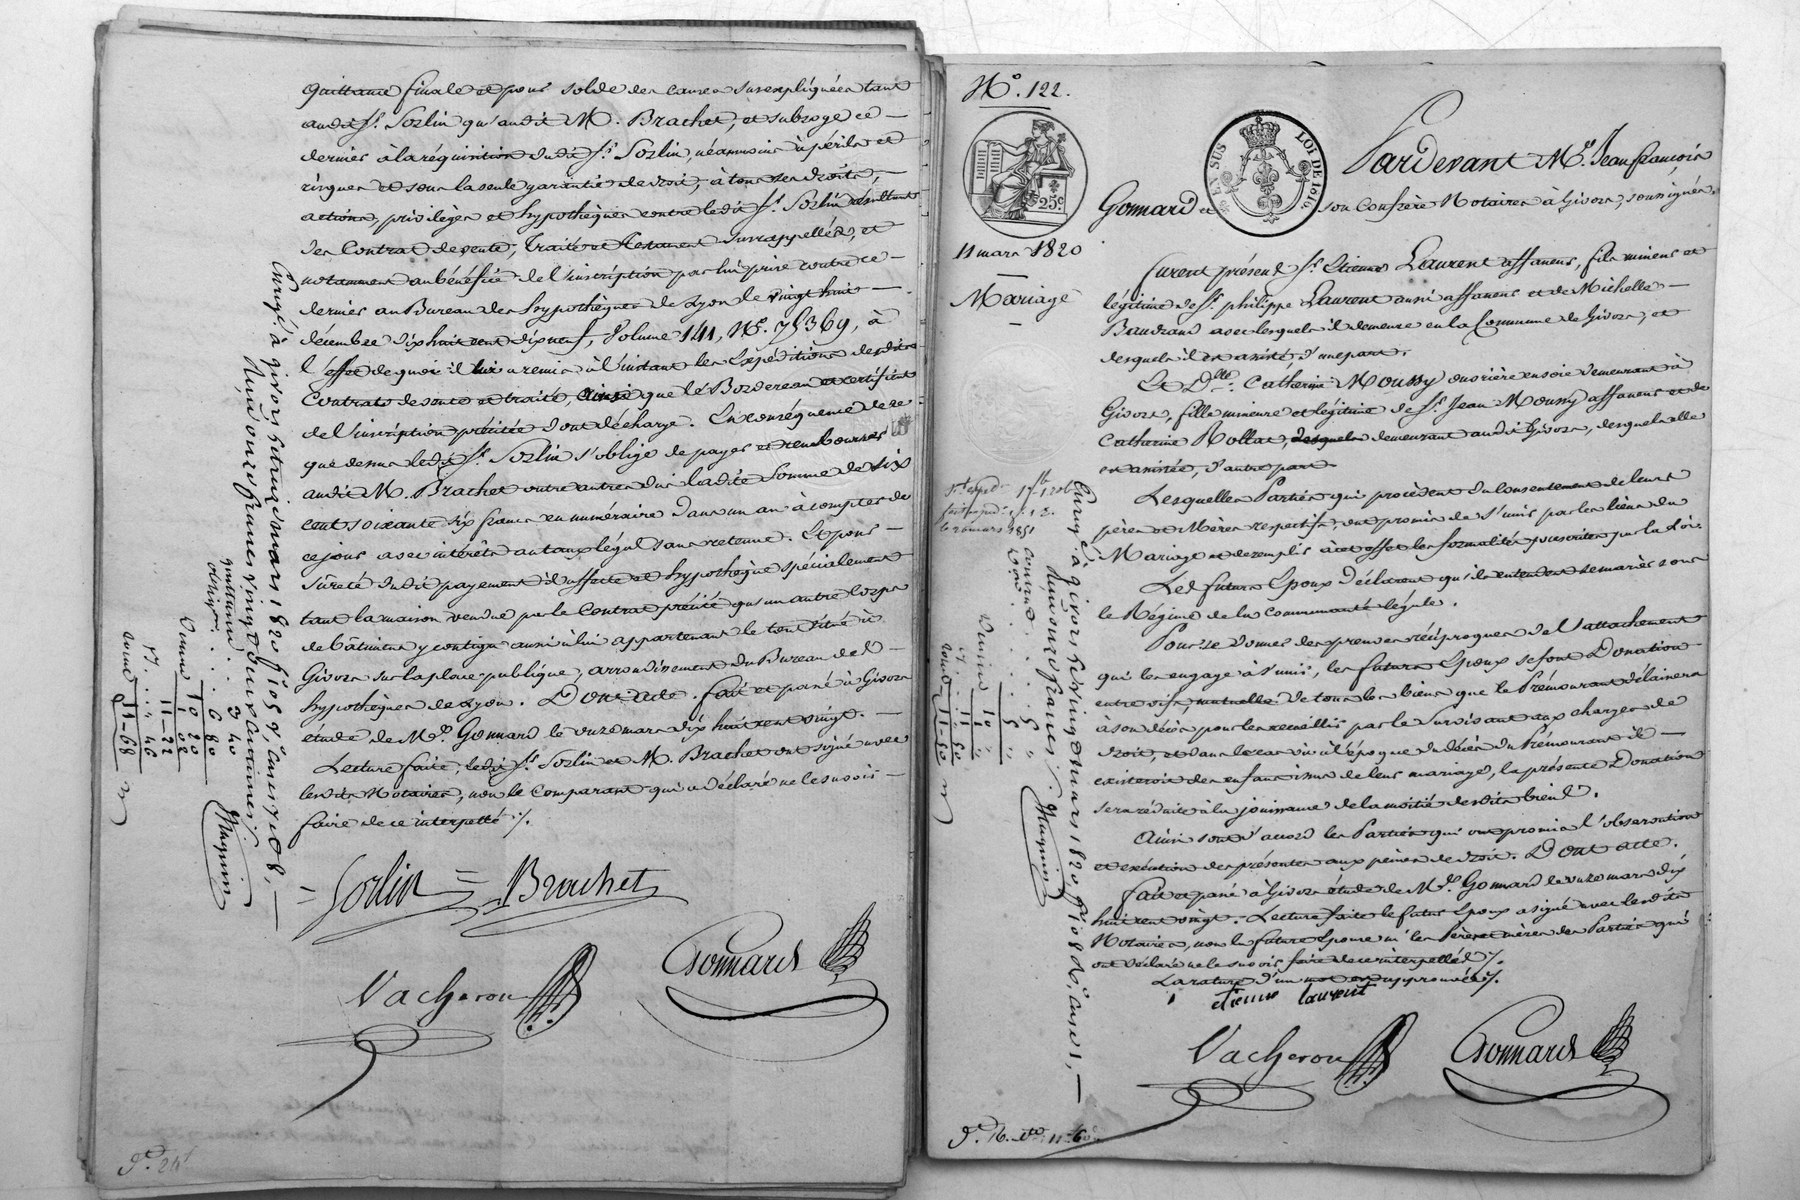 quittance finale et pour solde des causes susexpliquées tant
audit Sr. Sorlin qu'audit M. Brachet, et subroge ce –
dernier à la réquisition dudit Sr. Sorlin, néanmoins à périls et
risques et sous la seule garantie de droit, à tous ses droits, –
actions, privilèges et hypothèques contre ledit Sr. Sorlin résultant
des Contrat de vente, Traité et Testament susrappellés, et
notamment au bénéfice de l'inscription par lui prise contre ce –
dernier au Bureau des hypothèques de Lyon le vingt huit –
décembre dix huit cent dix neuf, Volume 141, No. 75369, à
l'effet de quoi il lui a remis à l'instant les Expéditions desdits
Contrats de vente et traité, ainsi que le Bordereau et certificat
de l'inscription précitée dont décharge. En conséquence de ce
que dessus ledit Sr. Sorlin s'oblige de payer et rembourser
audit M. Brachet outre autres dus ladite Somme de six
cent soixante six francs en numéraire dans un an à compter de
ce jour avec intérêts au taux légal sans retenue. Et pour –
sûreté dudit payement il affecte et hypothèque spécialement
tant la maison vendue par le Contrat précité qu'un autre corps
de bâtiment y contigu aussi à lui appartenant le tout situé à
Givors sur la place publique, arrondissement du Bureau des
hypothèques de Lyon. Dont acte. fait et passé à Givors
étude de Me. Gonnard le onze mars dix huit cent vingt. –
Lecture faite, ledit Sr. Sorlin et M. Brachet ont signé avec
lesdits Notaires, non le comparant qui a déclaré ne le savoir –
faire de ce interpellé ./.
= Sorlin = Brachet
Vacheron Gonnard
Enregé. à givors le treize mars 1820 fo 105 Vo Cases 7 et 8, –
Reçu onze francs vingt deux centimes./.
Maguin
quittance . . 3 40
oblig. . . . 6 80
10 20
Dixme 1 02
11 - 22
. . . . " 46
Total 11 - 68
No. 122.
25c
EN SUS LOI DE 1816
11 mars 1820
–
Mariage
–
Pardevant Me. Jean françois
Gonnard et son Confrère Notaires à Givors, soussignés,
furent présent Sr. Etienne Laurent affaneur, fils mineur et
légitime de Sr. philippe Laurent aussi affaneur et de Michelle –
Baudrand avec lesquels il demeure en la Commune de Givors, et
desquels il est assisté, d'une part.
Et Dlle. Catherine Moussy ouvrière en soie demeurant à
Givors, fille mineure et légitime de Sr. Jean Moussy affaneur et de
Catherine Rollat, demeurant audit Givors, desquels elle
est assistée, d'autre part.
Lesquelles Parties qui procèdent du consentement de leurs
pères et Mères respectifs, ont promis de s'unir par les liens du
Mariage et de remplir à cet effet les formalités prescrites par la loi.
Les futurs Epoux déclarent qu'ils entendent se mariér sous
le Régime de la communauté légale.
Pour se donner des preuves réciproques de l'attachement
qui les engage à s'unir, les futurs Epoux se font Donation
entre vifs, mutuelle de tous les biens que le Prémourant délaissera
à son décès pour les recueillir par le Survivant aux charges de
droit, et dans le cas où à l'époque du décès du Prémourant il –
existeroit des enfans issus de leur mariage, la présente Donation
sera réduite à la jouissance de la moitié desdits biens.
Ainsi sont d'accord les Parties qui ont promis l'observation
et exécution des présentes aux peines de droit. Dont acte.
fait et passé à Givors étude de Me. Gonnard le onze mars dix
huit cent vingt. Lecture faite le futur Epoux a signé avec lesdits
Notaires, non la future Epouse ni les Père et mères des Parties qui
ont déclaré ne le savoir faire de ce interpellés ./.
La rature d'un mot est approuvée ./.
etienne laurent
Vacheron Gonnard
Enregé. à givors le vingt mars 1820 fo 108 Vo, Case 1, –
Reçu onze francs ./.
Maguin
Dixme
Total